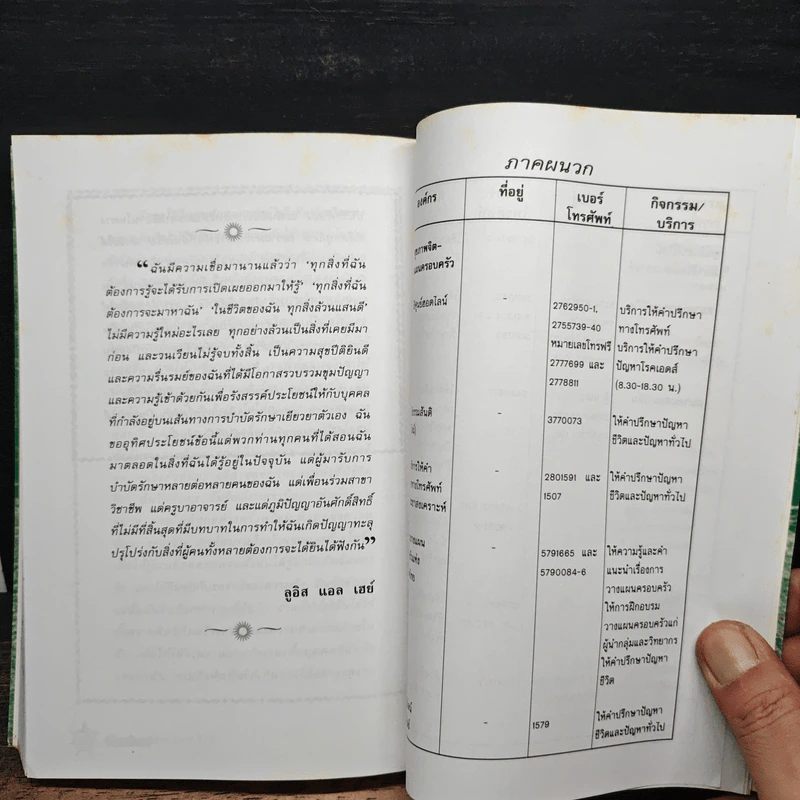 “ฉันมีความเชื่อมานานแล้วว่า ‘ทุกสิ่งที่ฉัน
ต้องการรู้จะได้รับการเปิดเผยออกมาให้รู้’ ‘ทุกสิ่งที่ฉัน
ต้องการจะมาหาฉัน’ ‘ในชีวิตของฉัน ทุกสิ่งล้วนแสนดี’
ไม่มีความรู้ใหม่อะไรเลย ทุกอย่างล้วนเป็นสิ่งที่เคยมีมา
ก่อน และวนเวียนไม่รู้จบทั้งสิ้น เป็นความสุขปีติยินดี
และความรื่นรมย์ของฉันที่ได้มีโอกาสรวบรวมขุมปัญญา
และความรู้เข้าด้วยกันเพื่อรังสรรค์ประโยชน์ให้กับบุคคล
ที่กำลังอยู่บนเส้นทางการบำบัดรักษาเยียวยาตัวเอง ฉัน
ขออุทิศประโยชน์ข้อนี้แด่พวกท่านทุกคนที่ได้สอนฉัน
มาตลอดในสิ่งที่ฉันได้รู้อยู่ในปัจจุบัน แด่ผู้มารับการ
บำบัดรักษาหลายต่อหลายคนของฉัน แด่เพื่อนร่วมสาขา
วิชาชีพ แด่ครูบาอาจารย์ และแด่ภูมิปัญญาอันศักดิ์สิทธิ์
ที่ไม่มีที่สิ้นสุดที่มีบทบาทในการทำให้ฉันเกิดปัญญาทะลุ
ปรุโปร่งกับสิ่งที่ผู้คนทั้งหลายต้องการจะได้ยินได้ฟังกัน”
ลูอิส แอล เฮย์
ภาคผนวก
องค์กร ที่อยู่ เบอร์ กิจกรรม/
โทรศัพท์ บริการ
ุขภาพจิต-
แผนครอบครัว
ศูนย์ฮอตไลน์ - 2762950-1, บริการให้คำปรึกษา
2755739-40 ทางโทรศัพท์
หมายเลขโทรฟรี บริการให้คำปรึกษา
2777699 และ ปัญหาโรคเอดส์
2778811 (8.30-18.30 น.)
- 3770073 ให้คำปรึกษาปัญหา
ชีวิตและปัญหาทั่วไป
การให้คำ - 2801591 และ ให้คำปรึกษาปัญหา
ทางโทรศัพท์ 1507 ชีวิตและปัญหาทั่วไป
- 5791665 และ ให้ความรู้และคำ
5790084-6 แนะนำเรื่องการ
วางแผนครอบครัว
ให้การฝึกอบรม
วางแผนครอบครัวแก่
ผู้นำกลุ่มและวิทยากร
ให้คำปรึกษาปัญหา
ชีวิต
- 1579 ให้คำปรึกษาปัญหา
ชีวิตและปัญหาทั่วไป